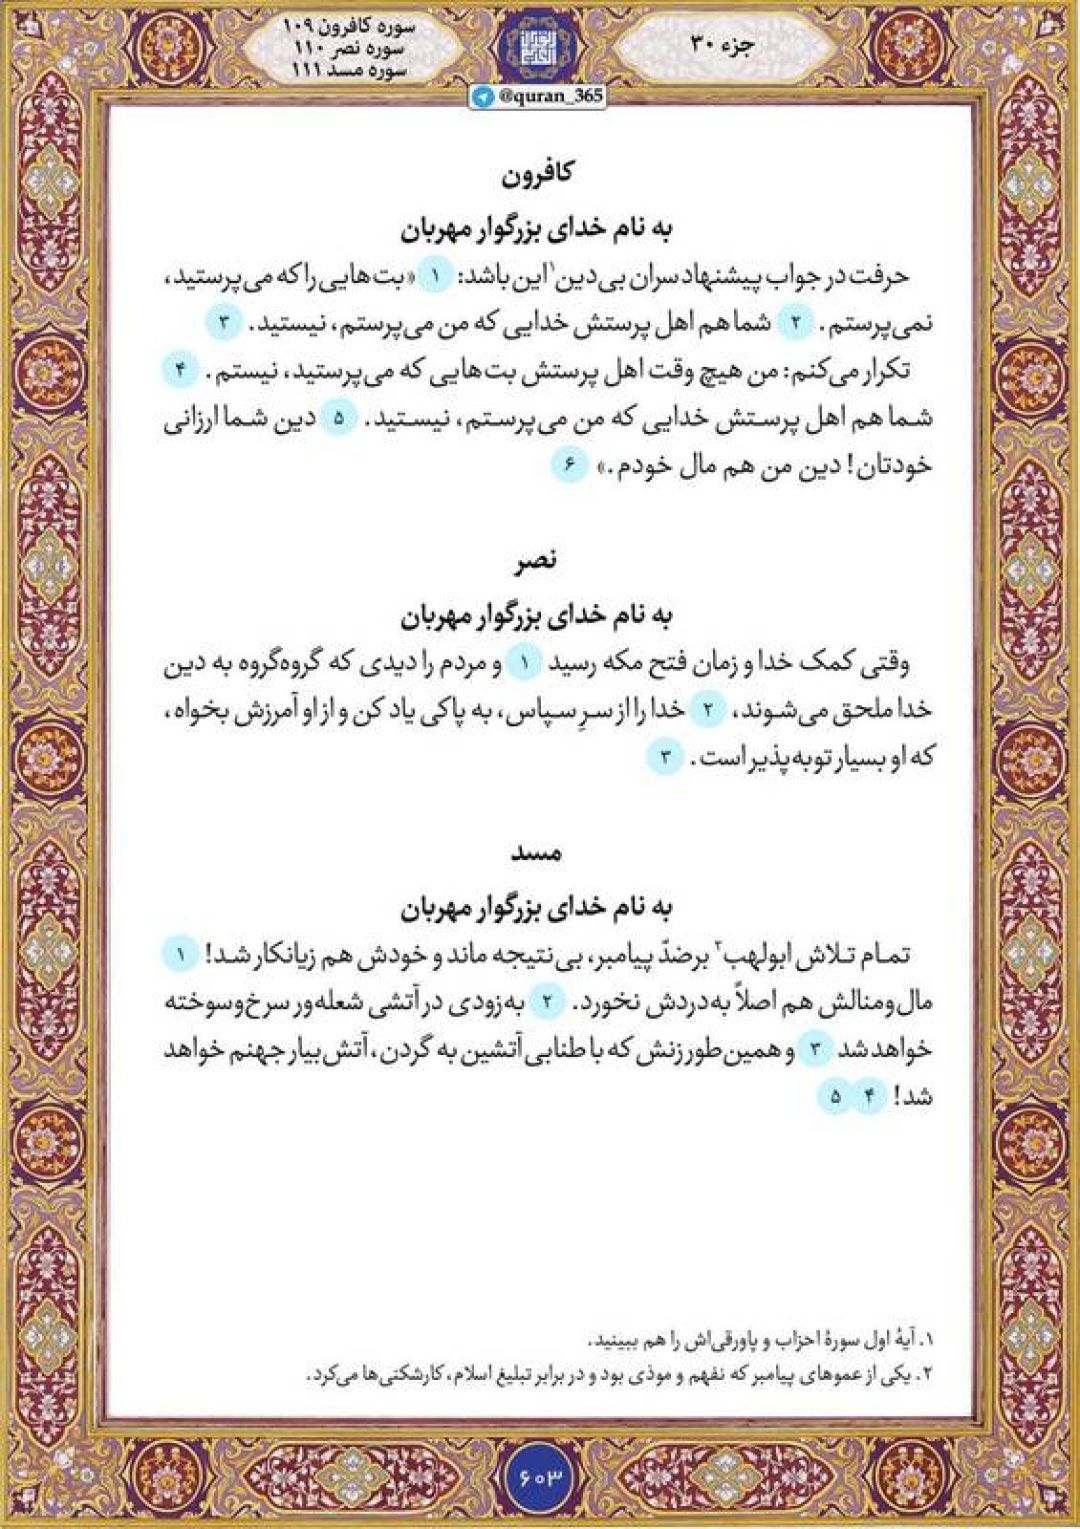 جزء ۳۰
سوره کافرون ۱۰۹
سوره نصر ۱۱۰
سوره مسد ۱۱۱
@quran_365
کافرون
به نام خدای بزرگوار مهربان
حرفت در جواب پیشنهاد سران بی‌دین۱ این باشد: ۱ «بت‌هایی را که می‌پرستید،
نمی‌پرستم. ۲ شما هم اهل پرستش خدایی که من می‌پرستم، نیستید. ۳
تکرار می‌کنم: من هیچ وقت اهل پرستش بت‌هایی که می‌پرستید، نیستم. ۴
شما هم اهل پرستش خدایی که من می‌پرستم، نیستید. ۵ دین شما ارزانی
خودتان! دین من هم مال خودم.» ۶
نصر
به نام خدای بزرگوار مهربان
وقتی کمک خدا و زمان فتح مکه رسید ۱ و مردم را دیدی که گروه‌گروه به دین
خدا ملحق می‌شوند، ۲ خدا را از سرِ سپاس، به پاکی یاد کن و از او آمرزش بخواه،
که او بسیار توبه‌پذیر است. ۳
مسد
به نام خدای بزرگوار مهربان
تمام تلاش ابولهب۲ برضدّ پیامبر، بی‌نتیجه ماند و خودش هم زیانکار شد! ۱
مال‌ومنالش هم اصلاً به‌دردش نخورد. ۲ به‌زودی در آتشی شعله‌ور سرخ‌وسوخته
خواهد شد ۳ و همین‌طور زنش که با طنابی آتشین به گردن، آتش‌بیار جهنم خواهد
شد! ۴ ۵
۱. آیهٔ اول سورهٔ احزاب و پاورقی‌اش را هم ببینید.
۲. یکی از عموهای پیامبر که نفهم و موذی بود و در برابر تبلیغ اسلام، کارشکنی‌ها می‌کرد.
۶۰۳